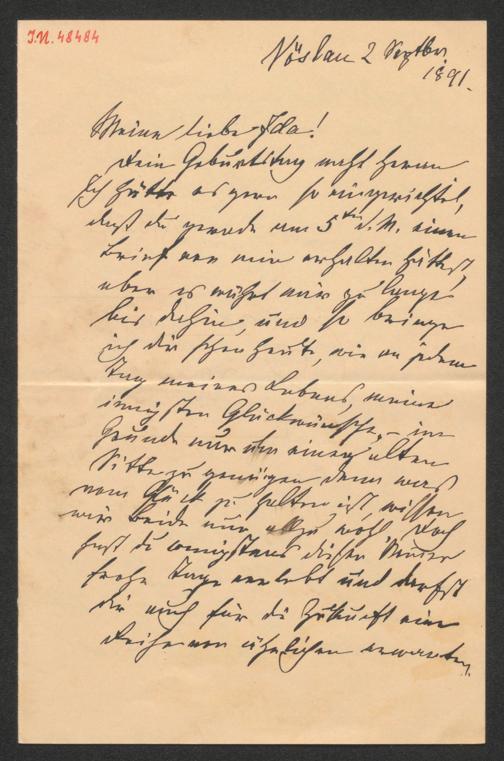 I.N. 48484
Vöslau 2 Septber
1891.
Meine liebe Ida!
Dein Geburtstag naht heran
Ich hätte es gern so eingerichtet,
daß du gerade am 5ten d. M. einen
Brief von mir erhalten hättest,
aber es währt mir zu lange
bis dahin, und so bringe
ich dir schon heute, wie an jedem
Tag meines Lebens, meine
innigsten Glückwünsche, – im
Grunde nur um einer alten
Sitte zu genügen denn was
vom Glück zu halten ist, wissen
wir beide nur allzu wohl. Doch
hast du wenigstens diesen Sommer
frohe Tage verlebt und darfst
dir auch für die Zukunft eine
Reihe von ähnlichen erwarten.